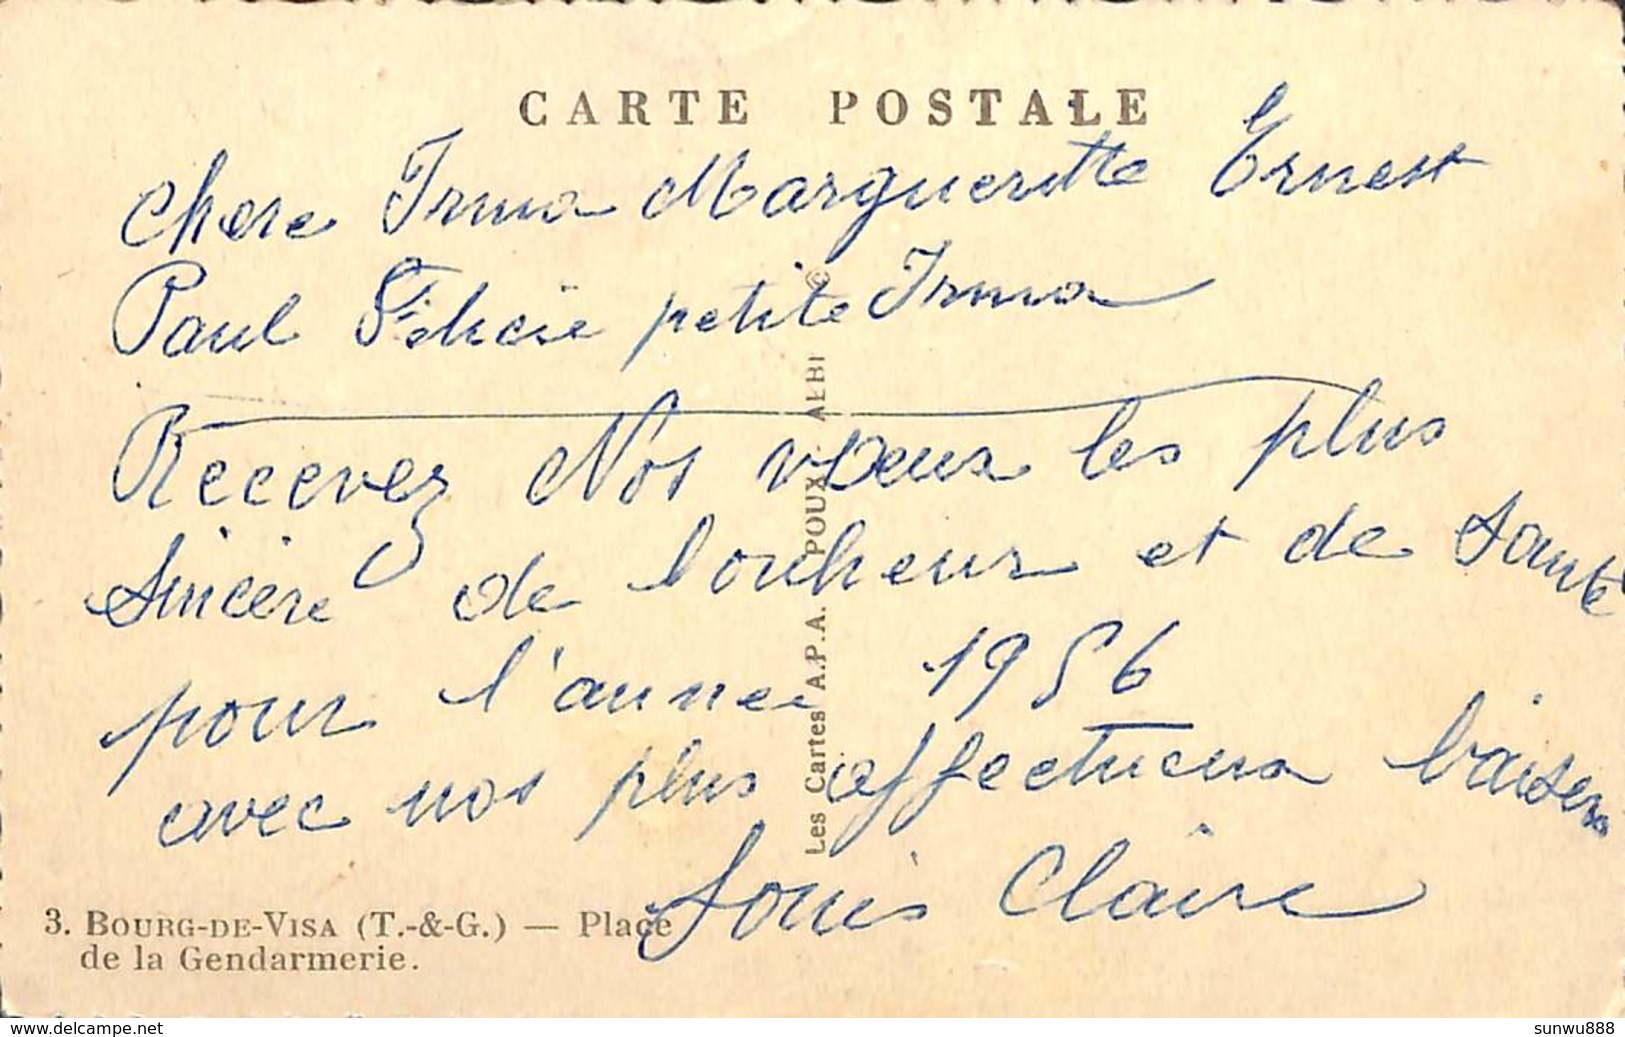 CARTE POSTALE
Chere Irma Margueritte Ernest
Paul Felicie petite Irma
Recevez Nos vœux les plus
Sincère de bonheur et de Santé
pour l'année 1956
avec nos plus affectueux baisers
Louis Claire
Les Cartes A.P.A. POUX - ALBI ©
3. BOURG-DE-VISA (T.-&-G.) — Place
de la Gendarmerie.
www.delcampe.net
sunwu888